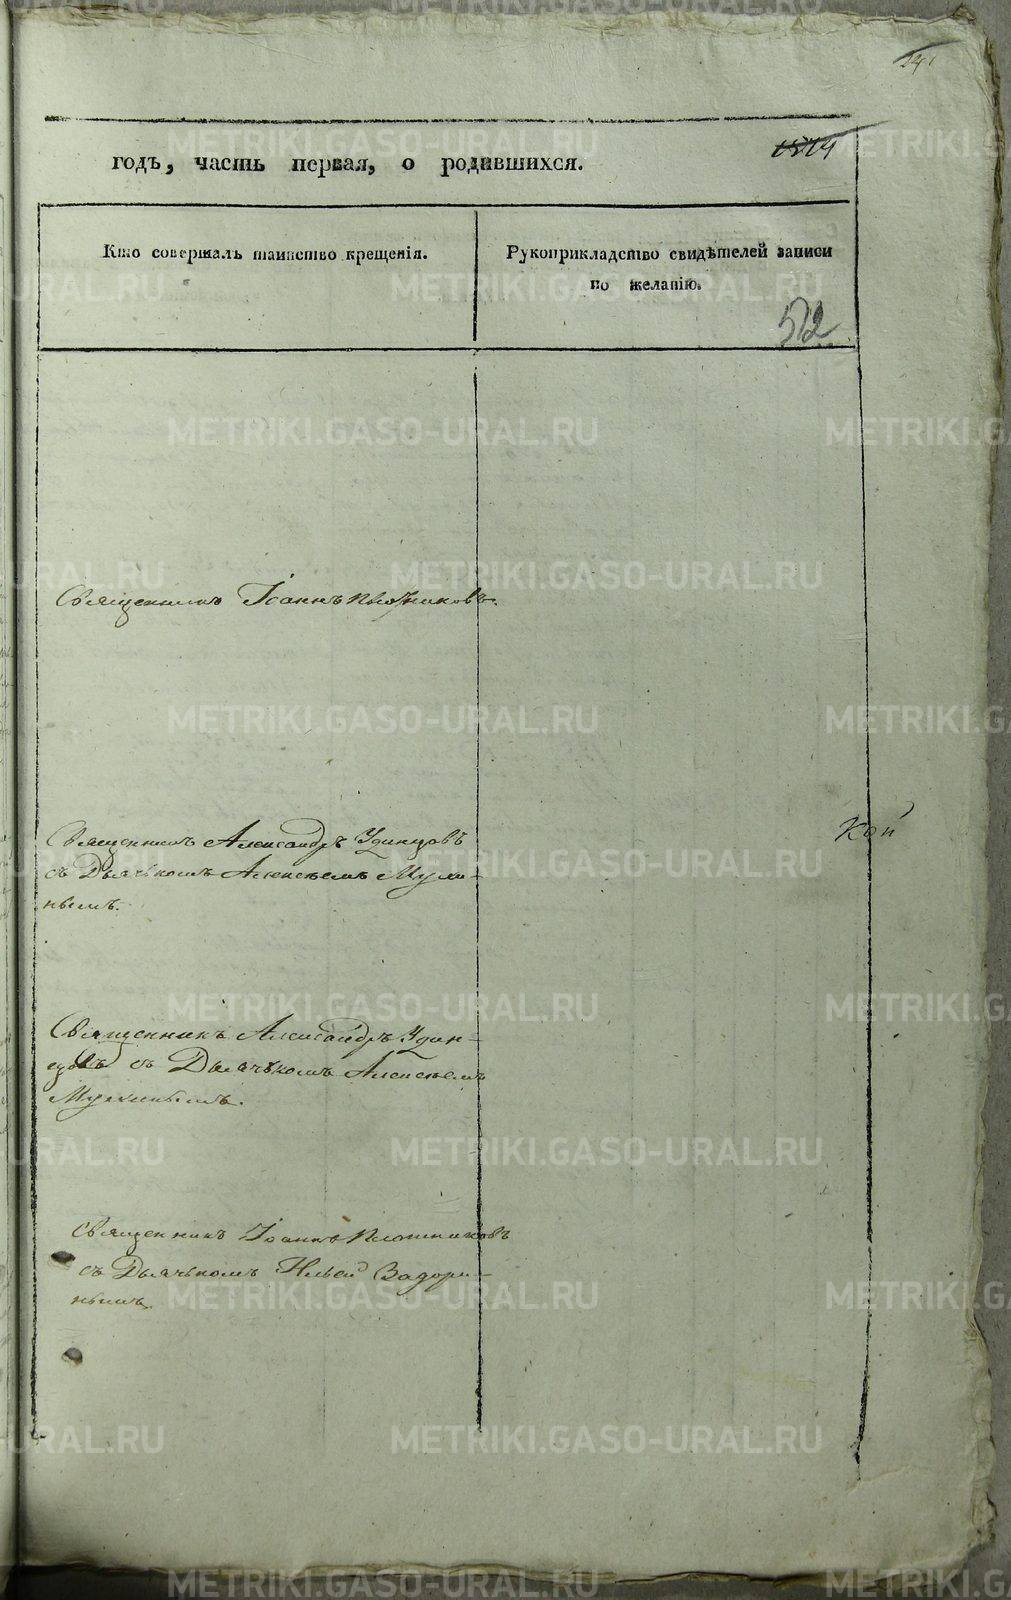 241
годъ, часть первая, о родившихся.
Кто совершалъ таинство крещенія.
Рукоприкладство свидѣтелей записи
по желанію.
512
Священникъ Іоаннъ Плотниковъ.
Священникъ Александръ Удинцовъ
съ Дьячькомъ Алексѣемъ Мухи-
нымъ.
Кон
Священникъ Александръ Удин-
цовъ съ Дьячькомъ Алексѣемъ
Мухинымъ.
Священникъ Іоаннъ Плотниковъ
съ Дьячькомъ Ильей Задори-
нымъ.
METRIKI.GASO-URAL.RU